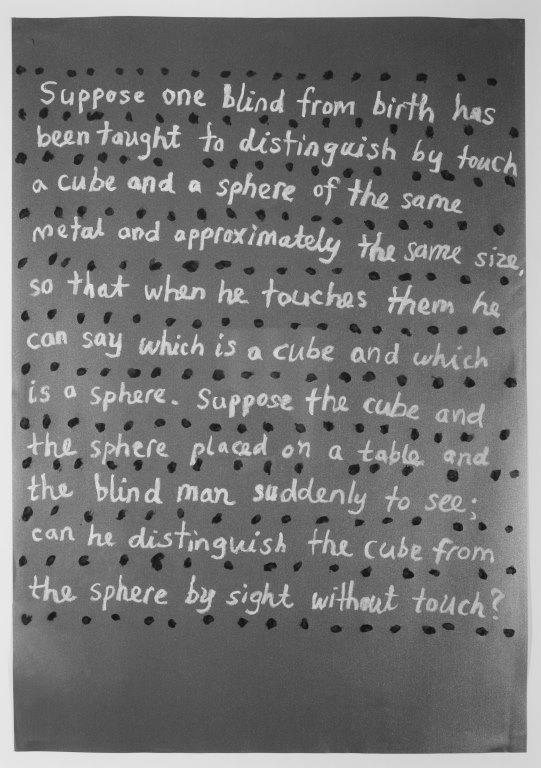 Suppose one blind from birth has
been taught to distinguish by touch
a cube and a sphere of the same
metal and approximately the same size,
so that when he touches them he
can say which is a cube and which
is a sphere. Suppose the cube and
the sphere placed on a table and
the blind man suddenly to see;
can he distinguish the cube from
the sphere by sight without touch?